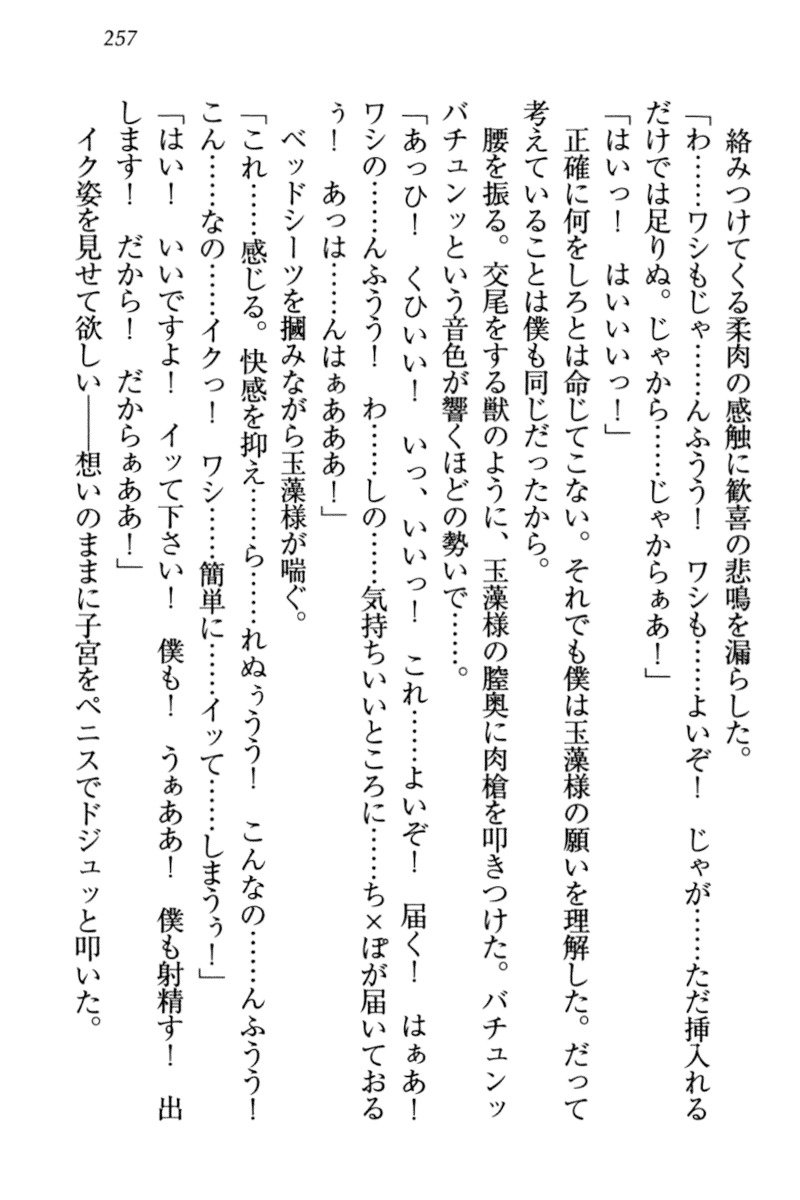 257
絡みつけてくる柔肉の感触に歓喜の悲鳴を漏らした。
「わ……ワシもじゃ……んふうう！　ワシも……よいぞ！　じゃが……ただ挿入れる
だけでは足りぬ。じゃから……じゃからぁあ！」
「はいっ！　はいいいっ！」
正確に何をしろとは命じてこない。それでも僕は玉藻様の願いを理解した。だって
考えていることは僕も同じだったから。
腰を振る。交尾をする獣のように、玉藻様の膣奥に肉槍を叩きつけた。バチュンッ
バチュンッという音色が響くほどの勢いで……。
「あっひ！　くひいい！　いっ、いいっ！　これ……よいぞ！　届く！　はぁあ！
ワシの……んふうう！　わ……しの……気持ちいいところに……ち×ぽが届いておる
ぅ！　あっは……んはぁあああ！」
ベッドシーツを掴みながら玉藻様が喘ぐ。
「これ……感じる。快感を抑え……ら……れぬぅうう！　こんなの……んふうう！
こん……なの……イクっ！　ワシ……簡単に……イッて……しまうぅ！」
「はい！　いいですよ！　イッて下さい！　僕も！　うぁああ！　僕も射精す！　出
します！　だから！　だからぁああ！」
イク姿を見せて欲しい――想いのままに子宮をペニスでドジュッと叩いた。